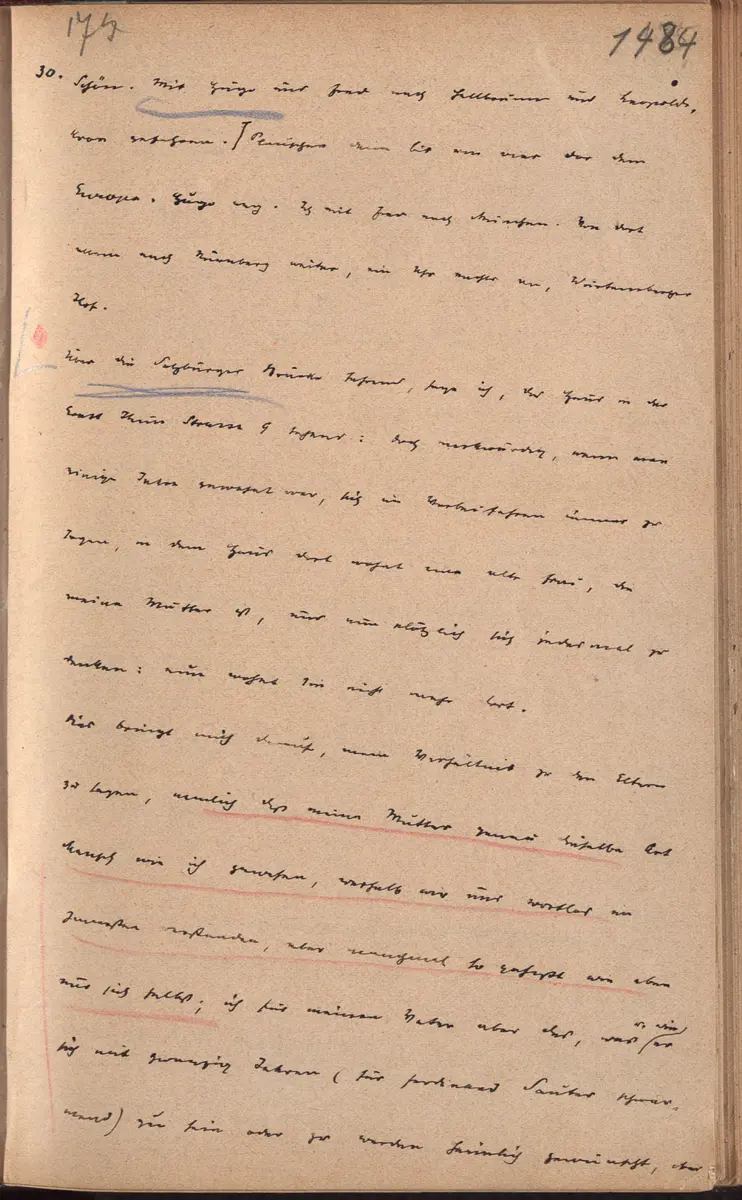 174
1484
30. Schön. Mit Hugo und Fred nach Hellbrunn und Leopolds-
kron gefahren. Plauschen dann bis um vier vor dem
Europe. Hugo weg. Ich mit Fred nach München. Von dort
allein nach Nürnberg weiter, ein Uhr nachts an, Württemberger
Hof.
Über die Salzburger Brücke fahrend, sage ich, das Haus in der
Ernst Thun Strasse 9 sehend: doch merkwürdig, wenn man
einige Jahre gewohnt war, sich im Vorbeifahren immer zu
sagen, in dem Haus dort wohnt eine alte Frau, die
meine Mutter ist, und nun plötzlich sich jedesmal zu
denken: nun wohnt sie nicht mehr dort.
Dies bringt mich darauf, mein Verhältnis zu den Eltern
zu sagen, nemlich daß meine Mutter genau dieselbe Art
Mensch wie ich gewesen, weshalb wir uns wortlos im
Innersten verstanden, aber manchmal so gehaßt wie eben
nur sich selbst; ich für meinen Vater aber das, was er
sich mit zwanzig Jahren (für Ferdinand Sauter schwär-
mend) zu sein oder zu werden heimlich gewünscht, aber